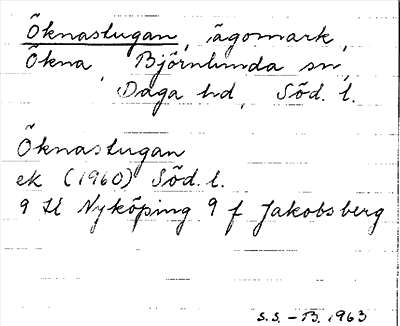 Öknastugan, ägomark,
Ökna, Björnlunda sn,
Daga hd, Söd. l.
Öknastugan
ek (1960) Söd. l.
9 H Nyköping 9 f Jakobsberg
S.S. - B. 1963